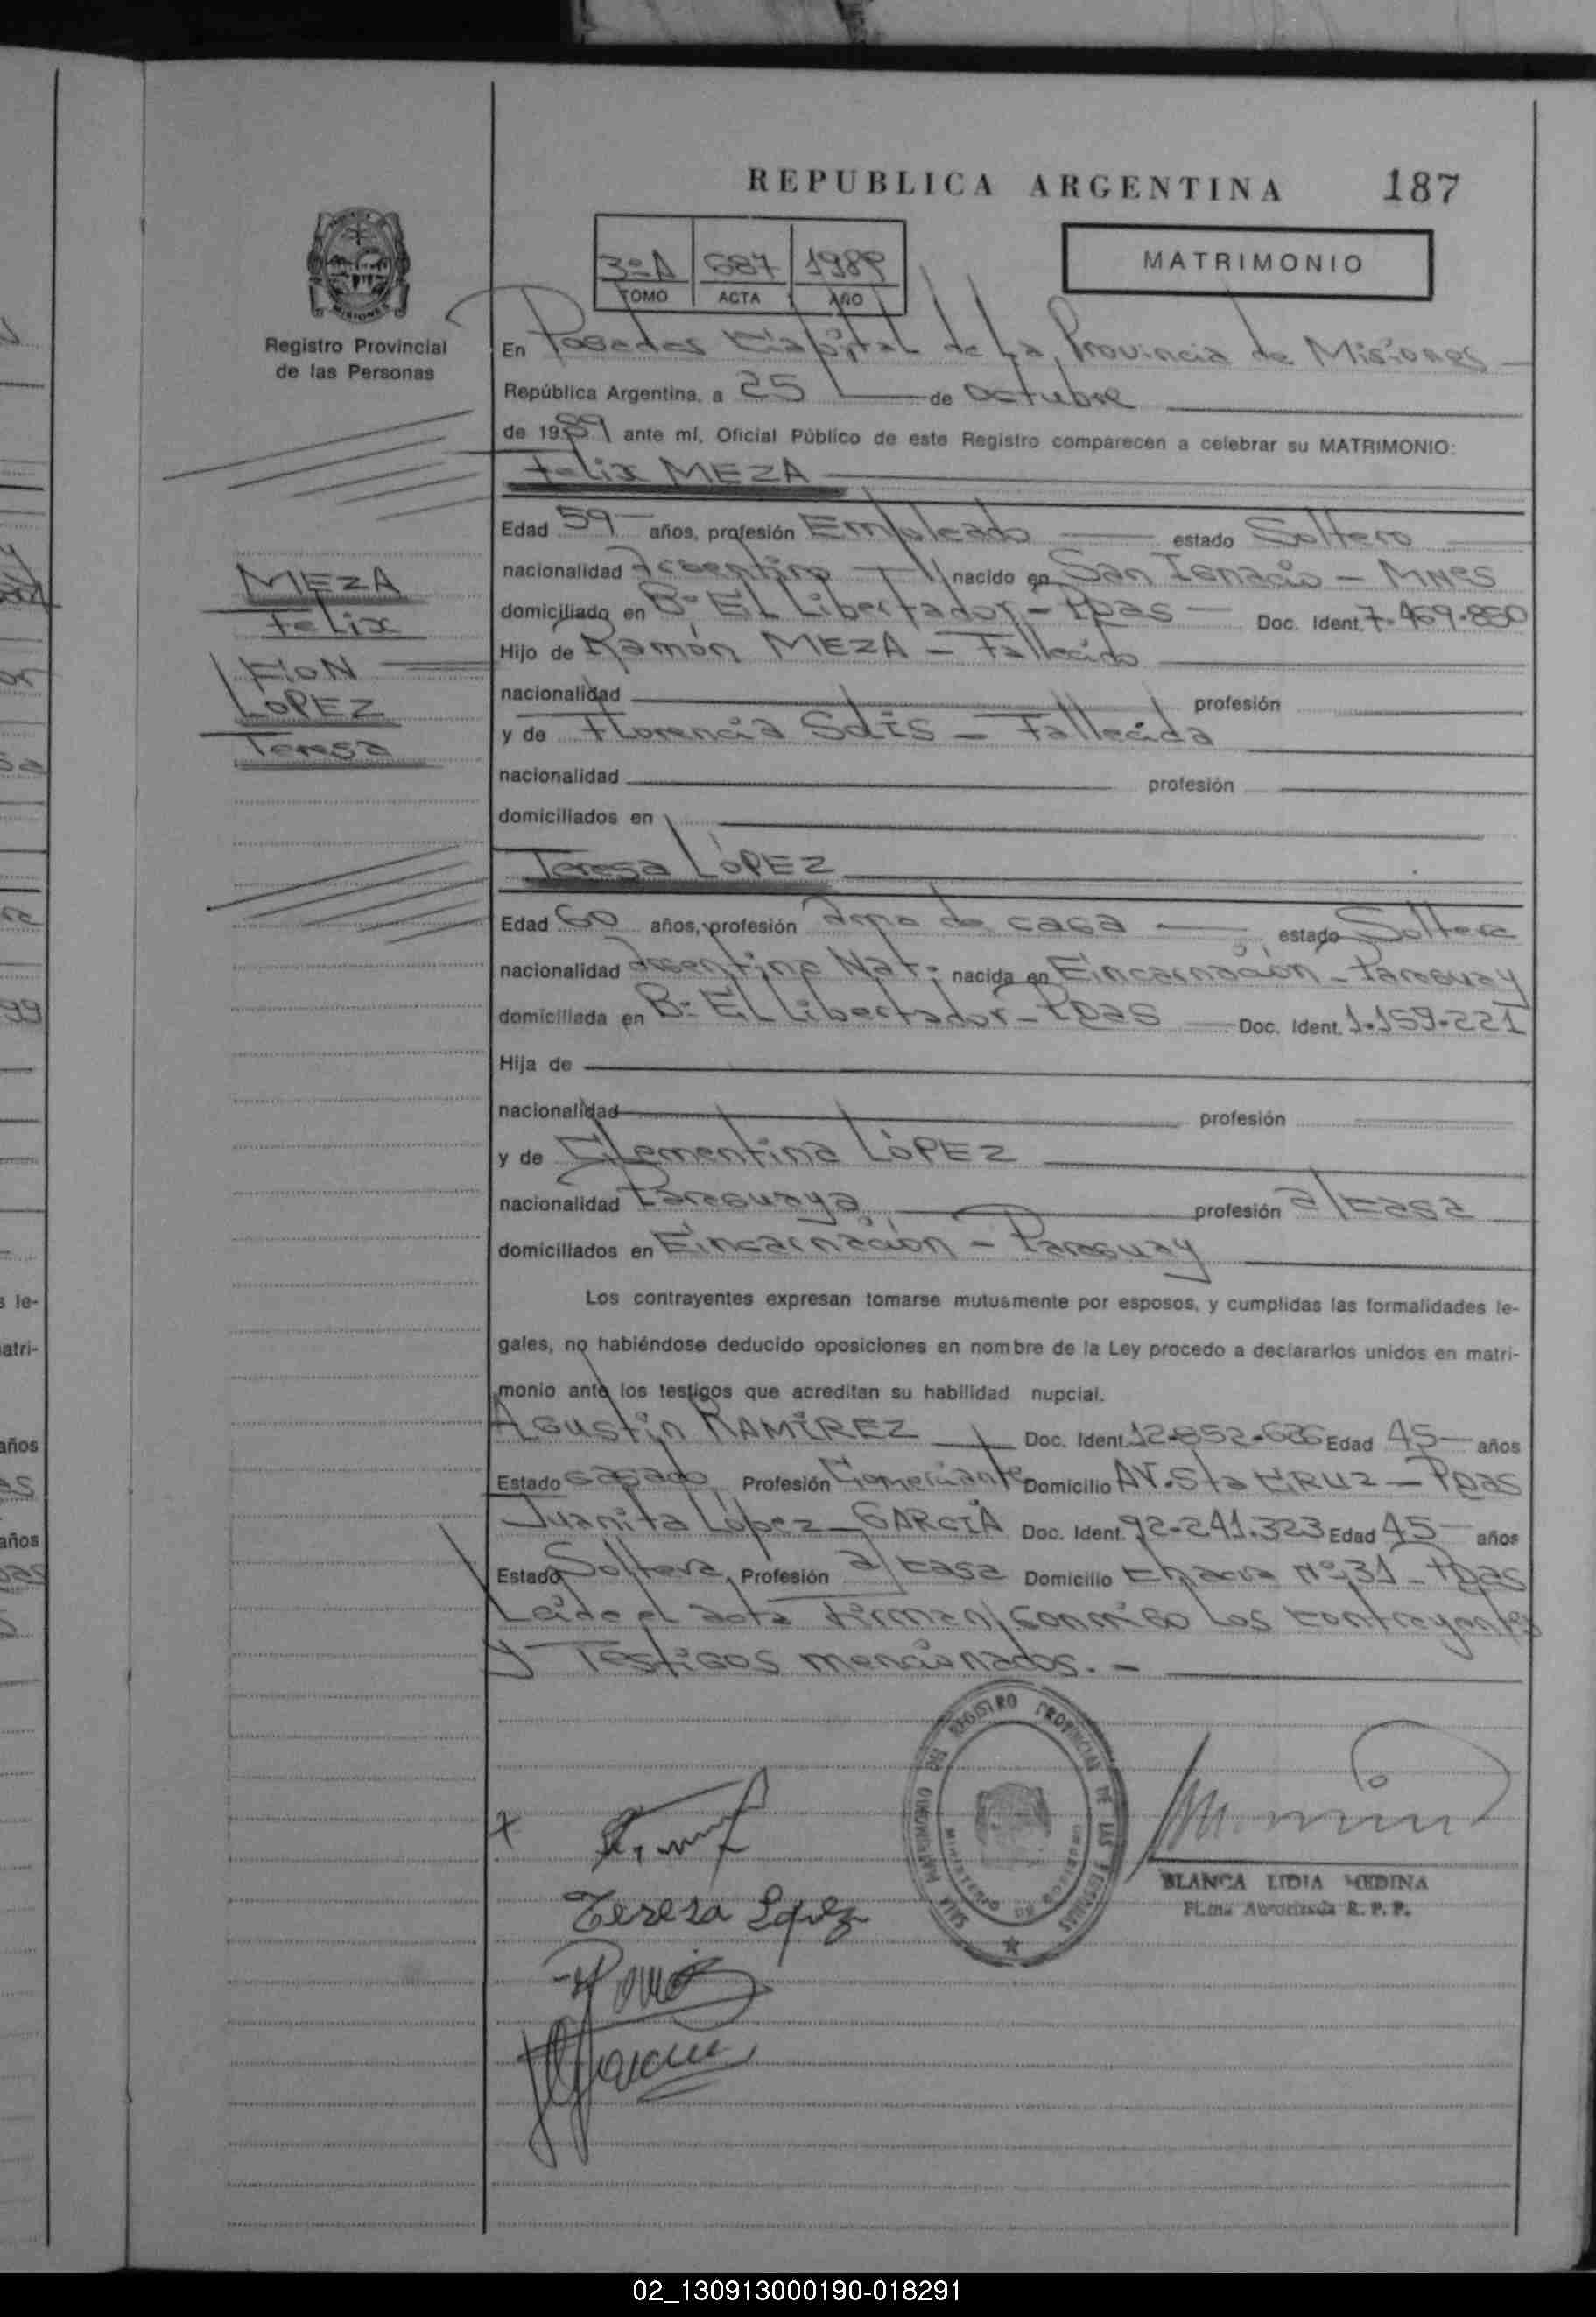 REPUBLICA ARGENTINA 187
3º A 687 1989
TOMO ACTA AÑO
MATRIMONIO
Registro Provincial
de las Personas
En Posadas Capital de La Provincia de Misiones
República Argentina, a 25 de octubre
de 1989 ante mí, Oficial Público de este Registro comparecen a celebrar su MATRIMONIO:
Felix MEZA
Edad 59 años, profesión Empleado estado Soltero
nacionalidad Argentino nacido en San Ignacio - Mnes
domiciliado en Bº El Libertador - Pdas Doc. Ident. 7.469.850
Hijo de Ramón MEZA - Fallecido
nacionalidad profesión
y de Florencia Solis - Fallecida
nacionalidad profesión
domiciliados en
MEZA
Felix
CON
LOPEZ
Teresa
Teresa LÓPEZ
Edad 60 años, profesión ama de casa estado Soltera
nacionalidad Argentina Nat. nacida en Encarnación - Paraguay
domiciliada en Bº El Libertador - Pdas Doc. Ident. 1.159.221
Hija de
nacionalidad profesión
y de Clementina LÓPEZ
nacionalidad Paraguaya profesión a/casa
domiciliados en Encarnación - Paraguay
Los contrayentes expresan tomarse mutuamente por esposos, y cumplidas las formalidades le-
gales, no habiéndose deducido oposiciones en nombre de la Ley procedo a declararlos unidos en matri-
monio ante los testigos que acreditan su habilidad nupcial.
Agustín RAMÍREZ Doc. Ident. 12.852.626 Edad 45 años
Estado casado Profesión Comerciante Domicilio AV. Sta CRUZ - Pdas
Juanita López GARCIA Doc. Ident. 92.241.323 Edad 45 años
Estado Soltera, Profesión a/casa Domicilio chacra Nº 31 - Pdas
Leída el acta firman conmigo los contrayentes
y Testigos mencionados. -
REGISTRO PROVINCIAL DE LAS PERSONAS
Teresa López
BLANCA LIDIA MEDINA
Firma Autorizada R. P. P.
02_130913000190-018291